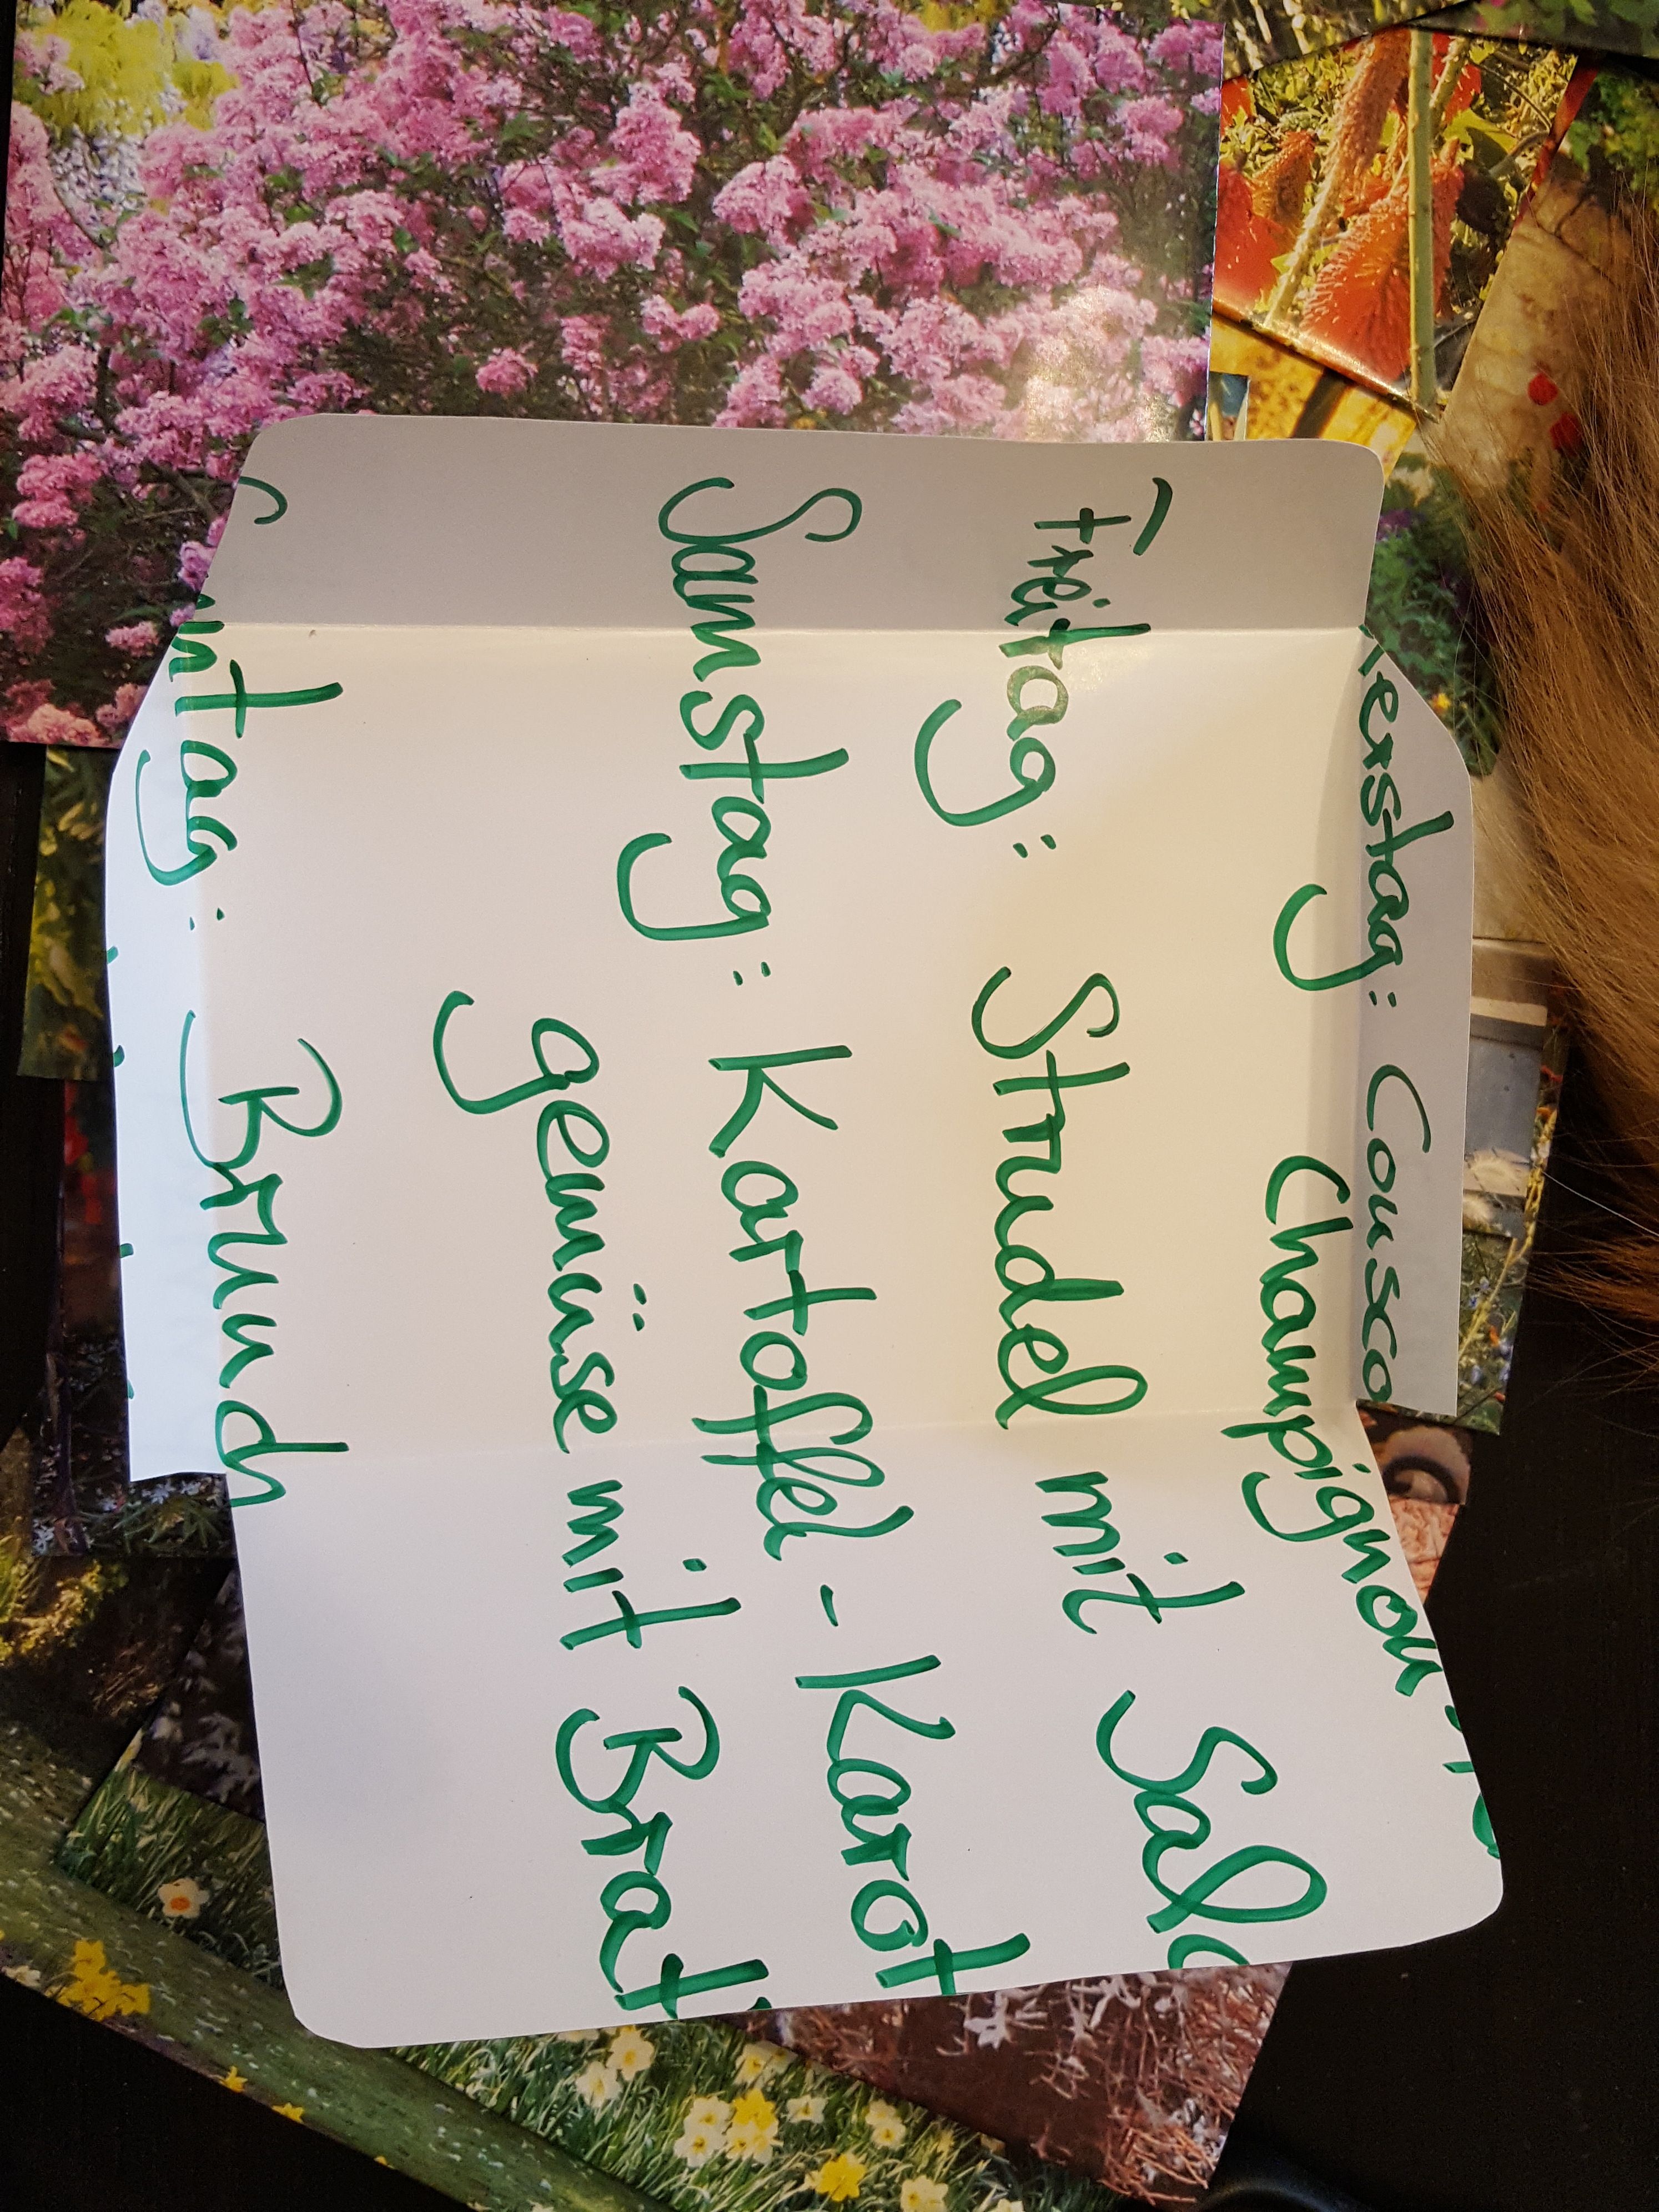 nerstag: Cousco
Champignon
Freitag: Strudel mit Sala
Samstag: Kartoffel-Karot
gemüse mit Brat
nntag: Brunch